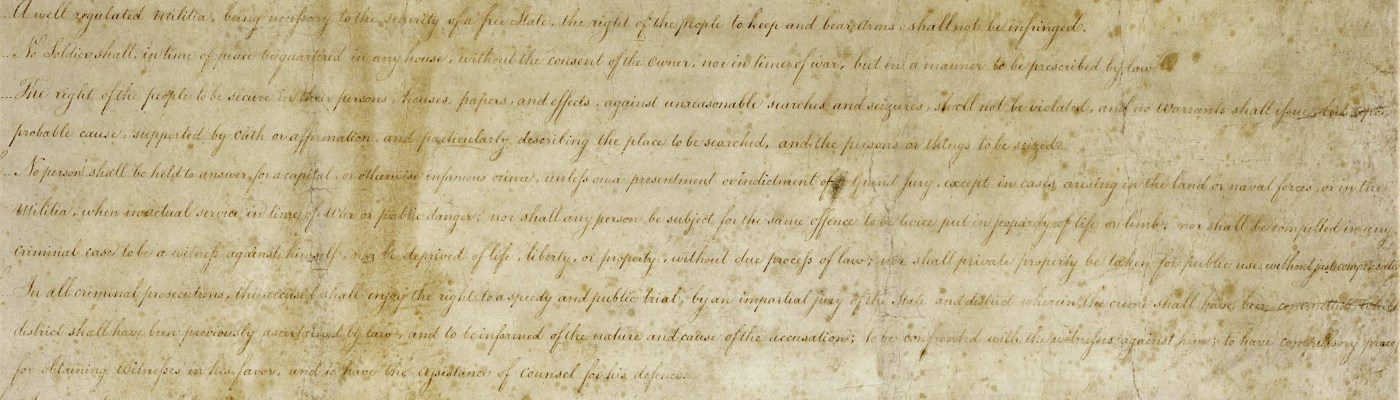 A well regulated Militia, being necessary to the security of a free State, the right of the people to keep and bear Arms, shall not be infringed.
No Soldier shall, in time of peace be quartered in any house, without the consent of the owner, nor in time of war, but in a manner to be prescribed by law.
The right of the people to be secure in their persons, houses, papers, and effects, against unreasonable searches and seizures, shall not be violated, and no Warrants shall issue, but upon
probable cause, supported by Oath or affirmation, and particularly describing the place to be searched, and the persons or things to be seized.
No person shall be held to answer for a capital, or otherwise infamous crime, unless on a presentment or indictment of a Grand Jury, except in cases arising in the land or naval forces, or in the
Militia, when in actual service in time of War or public danger; nor shall any person be subject for the same offence to be twice put in jeopardy of life or limb; nor shall be compelled in any
criminal case to be a witness against himself, nor be deprived of life, liberty, or property, without due process of law; nor shall private property be taken for public use without just
In all criminal prosecutions, the accused shall enjoy the right to a speedy and public trial, by an impartial jury of the State and district wherein the crime shall have been committed, which
district shall have been previously ascertained by law, and to be informed of the nature and cause of the accusation; to be confronted with the witnesses against him; to have compulsory process
for obtaining Witnesses in his favor, and to have the Assistance of Counsel for his defence.